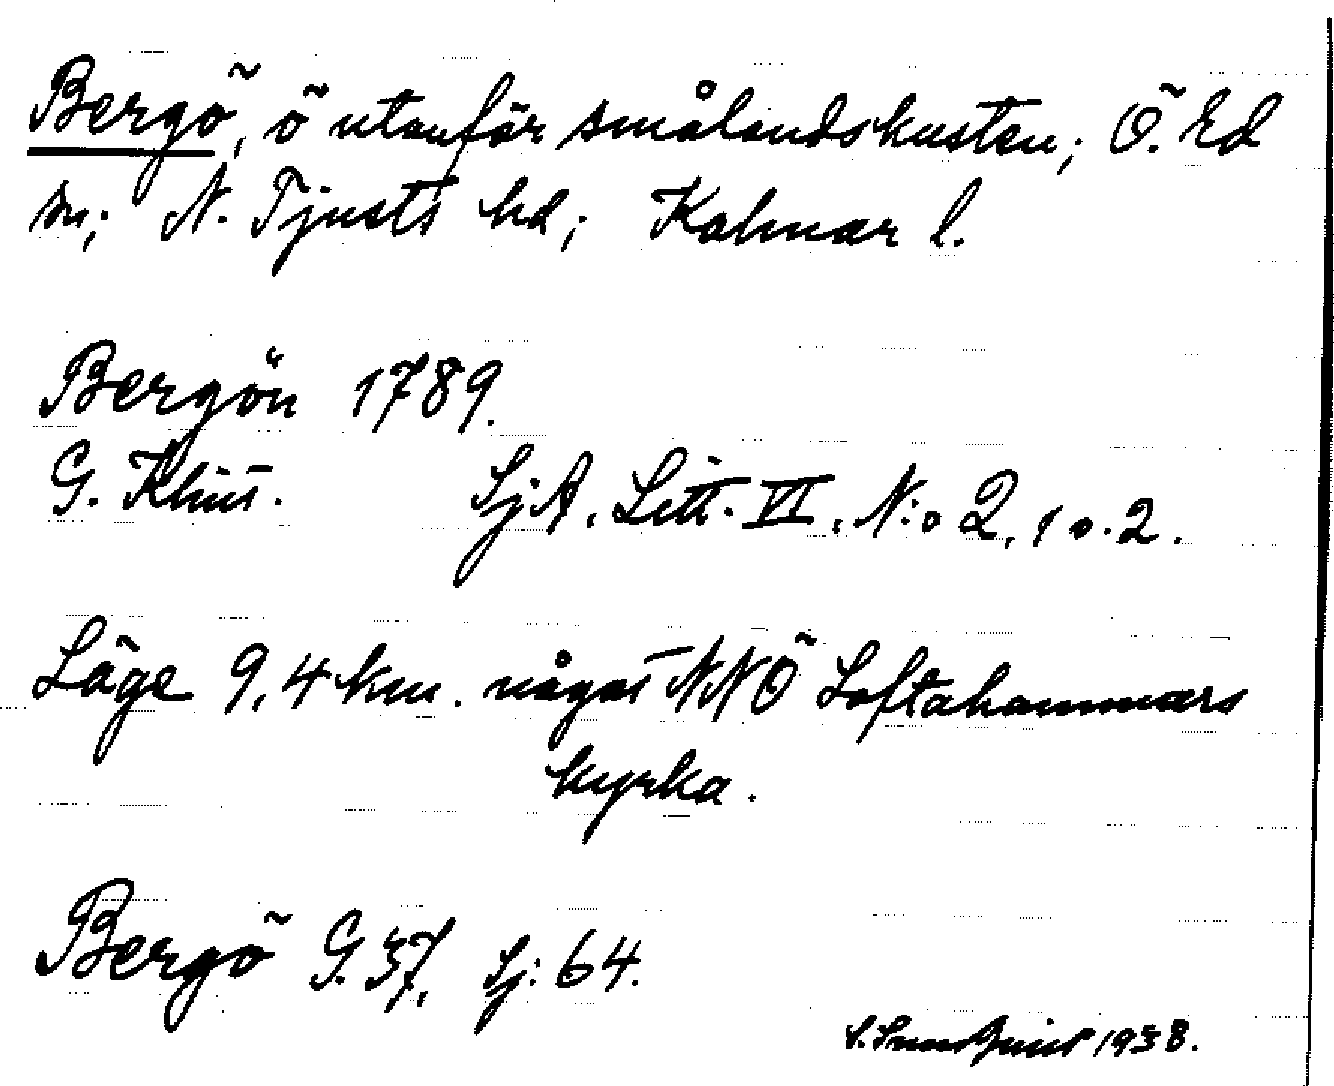 Bergö, ö utanför smålandskusten; Ö. Ed
sn; N. Tjusts hd; Kalmar l.
Bergön 1789.
G. Klint. SjA, Litt. VI, N:o 2, 1 o. 2.
Läge 9,4 km. något NNÖ Loftahammars
kyrka.
Bergö G. 37, Sj: 64.
1938.